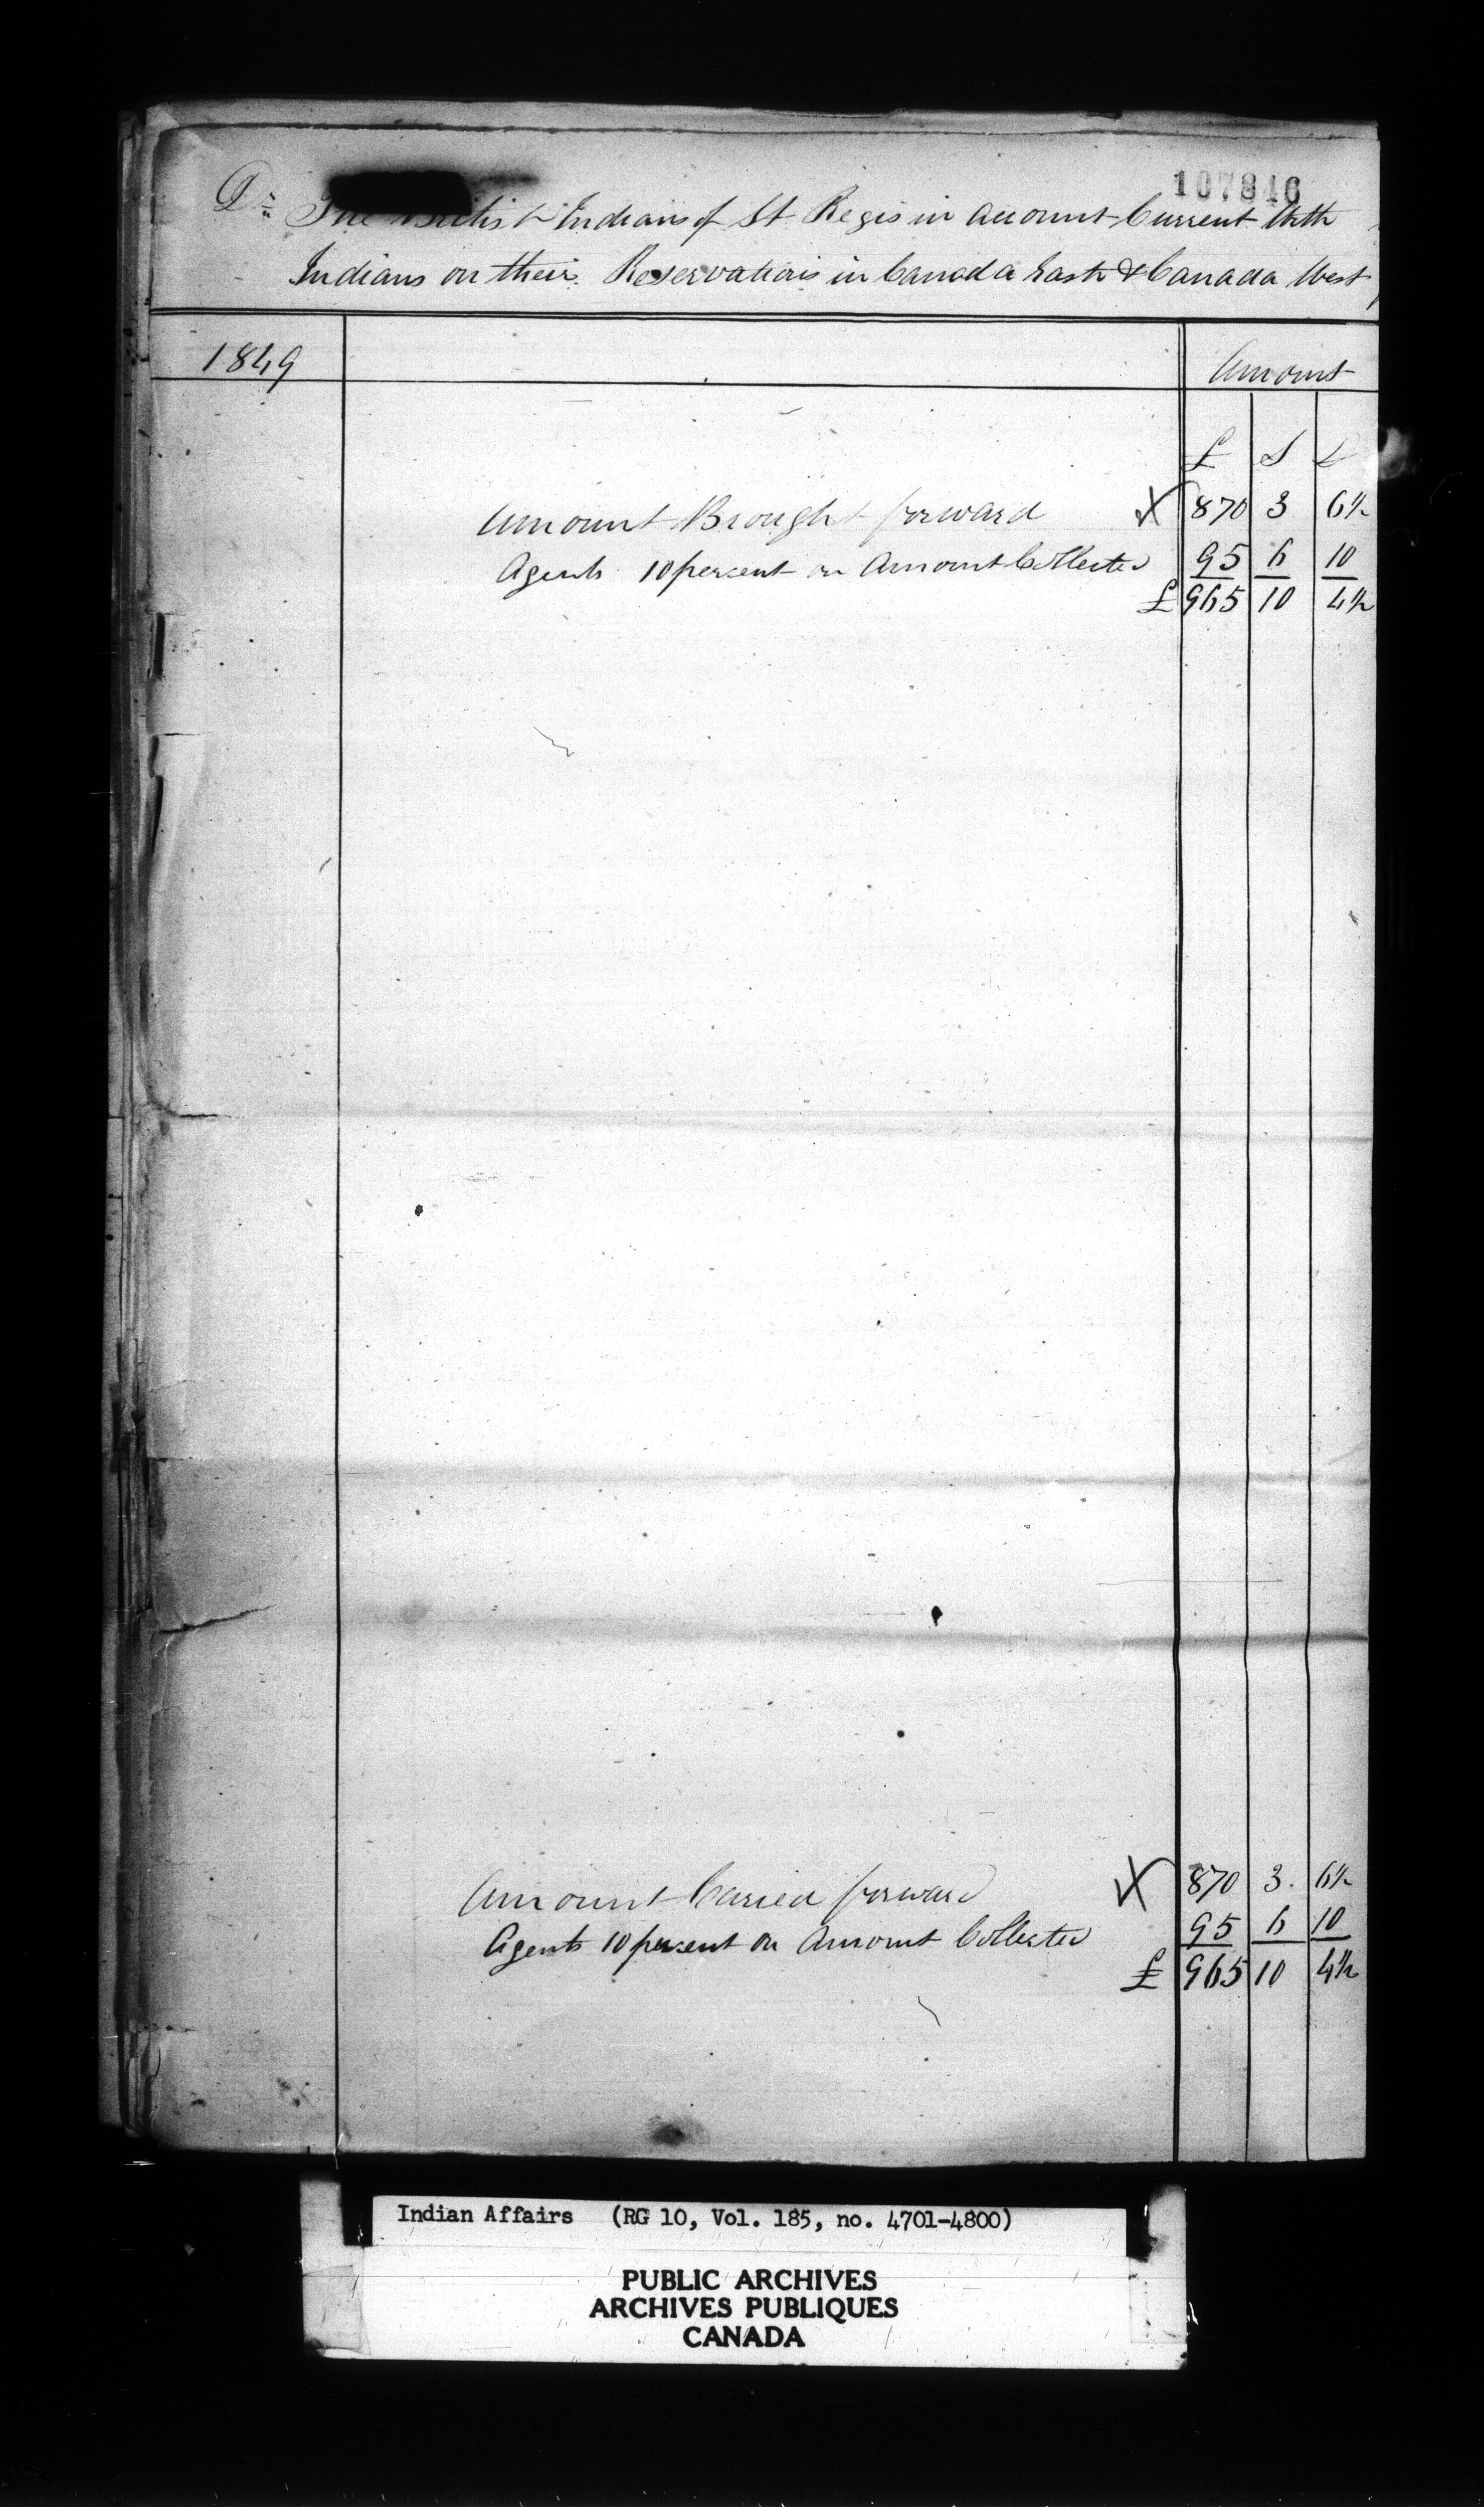 107846
Dr The British Indians of St Regis in account Current With
Indians on their Reservations in Canada East & Canada West
1849 Amount
£ S D
Amount Brought forward 870 3 6½
Agents 10 percent on Amount Collected 95 6 10
£ 965 10 4½
Amount Caried forward 870 3 6½
Agents 10 percent on Amount Collected 95 6 10
£ 965 10 4½
Indian Affairs (RG 10, Vol. 185, no. 4701-4800)
PUBLIC ARCHIVES
ARCHIVES PUBLIQUES
CANADA